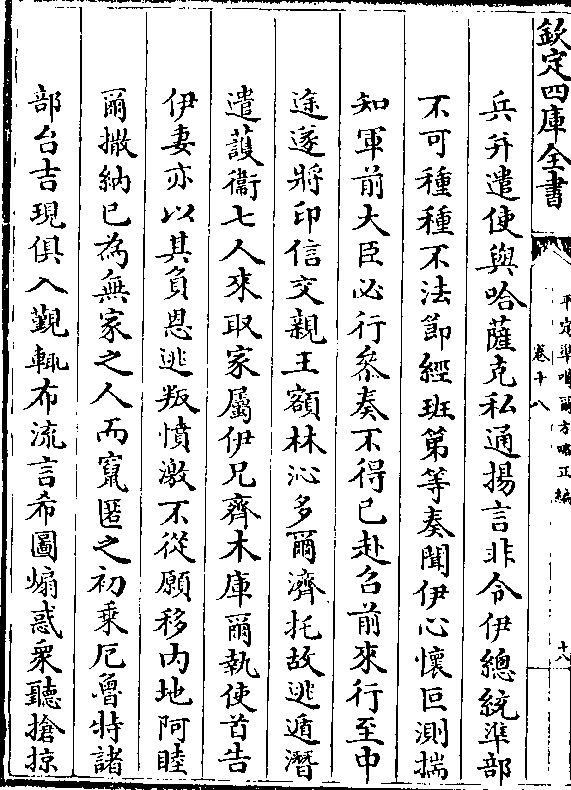 欽定四庫全書
平定準噶爾方略正編
卷十八
十八
兵并遣使與哈薩克私通揚言非令伊總統準部
不可種種不法節經班第等奏聞伊心懷叵測揣
知軍前大臣必行叅奏不得已赴召前來行至中
途遂將印信交親王額林沁多爾濟托故逃遁潛
遣護衞七人來取家屬伊兄齊木庫爾執使首告
伊妻亦以其負恩逃叛憤激不從願移内地阿睦
爾撒納已為無家之人而竄匿之初乗厄魯特諸
部台吉現俱入覲輒布流言希圖煽惑衆聽搶掠